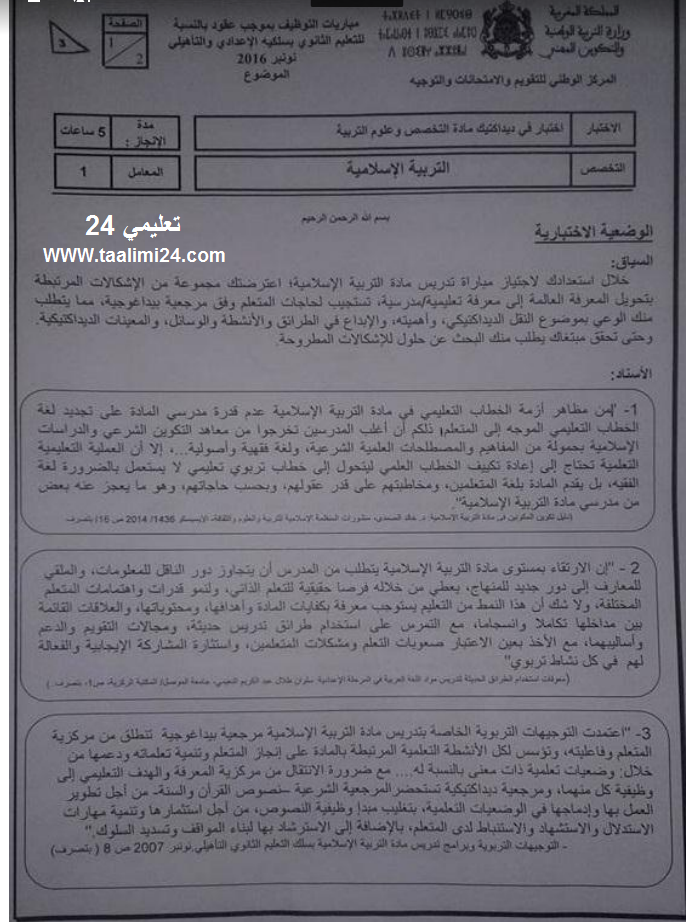 المملكة المغربية
وزارة التربية الوطنية
والتكوين المهني
مباريات التوظيف بموجب عقود بالنسبة
للتعليم الثانوي بسلكيه الإعدادي والتأهيلي
نونبر 2016
الموضوع
الصفحة
1
2
3
المركز الوطني للتقويم والامتحانات والتوجيه
الاختبار
اختبار في ديداكتيك مادة التخصص وعلوم التربية
مدة الإنجاز :
5 ساعات
التخصص
التربية الإسلامية
المعامل
1
بسم الله الرحمن الرحيم
تعليمي 24
WWW.taalimi24.com
الوضعية الاختبارية
السياق:
خلال استعدادك لاجتياز مباراة تدريس مادة التربية الإسلامية؛ اعترضتك مجموعة من الإشكالات المرتبطة
بتحويل المعرفة العالمة إلى معرفة تعليمية/مدرسية، تستجيب لحاجات المتعلم وفق مرجعية بيداغوجية، مما يتطلب
منك الوعي بموضوع النقل الديداكتيكي، وأهميته، والإبداع في الطرائق والأنشطة والوسائل، والمعينات الديداكتيكية.
وحتى تحقق مبتغاك يطلب منك البحث عن حلول للإشكالات المطروحة.
الأسناد:
1- "إمن مظاهر أزمة الخطاب التعليمي في مادة التربية الإسلامية عدم قدرة مدرسي المادة على تجديد لغة
الخطاب التعليمي الموجه إلى المتعلم؛ ذلكم أن أغلب المدرسين تخرجوا من معاهد التكوين الشرعي والدراسات
الإسلامية بحمولة من المفاهيم والمصطلحات العلمية الشرعية، ولغة فقهية وأصولية...، إلا أن العملية التعليمية
التعلمية تحتاج إلى إعادة تكييف الخطاب العلمي ليتحول إلى خطاب تربوي تعليمي لا يستعمل بالضرورة لغة
الفقيه، بل يقدم المادة بلغة المتعلمين، ومخاطبتهم على قدر عقولهم، وبحسب حاجاتهم، وهو ما يعجز عنه بعض
من مدرسي مادة التربية الإسلامية".
(دليل تكوين المكونين في مادة التربية الإسلامية: د. خالد الصمدي، منشورات المنظمة الإسلامية للتربية والعلوم والثقافة، الايسيسكو 1436/ 2014 ص 16/ بتصرف
2 - "إن الارتقاء بمستوى مادة التربية الإسلامية يتطلب من المدرس أن يتجاوز دور الناقل للمعلومات، والملقي
للمعارف إلى دور جديد للمنهاج، يعطي من خلاله فرصا حقيقية للتعلم الذاتي، ولنمو قدرات واهتمامات المتعلم
المختلفة، ولا شك أن هذا النمط من التعليم يستوجب معرفة بكفايات المادة وأهدافها، ومحتوياتها، والعلاقات القائمة
بين مداخلها تكاملا وانسجاما، مع التمرس على استخدام طرائق تدريس حديثة، ومجالات التقويم والدعم
وأساليبهما، مع الأخذ بعين الاعتبار صعوبات التعلم ومشكلات المتعلمين، واستثارة المشاركة الإيجابية والفعالة
لهم في كل نشاط تربوي"
(معوقات استخدام الطرائق الحديثة لتدريس مواد اللغة العربية في المرحلة الإعدادية: سلوان طلال عبد الكريم النعيمي، جامعة الموصل/ المكتبة المركزية، ص1، بتصرف . )
3- "اعتمدت التوجيهات التربوية الخاصة بتدريس مادة التربية الإسلامية مرجعية بيداغوجية تنطلق من مركزية
المتعلم وفاعليته، وتؤسس لكل الأنشطة التعلمية المرتبطة بالمادة على إنجاز المتعلم وتنمية تعلماته ودعمها من
خلال: وضعيات تعلمية ذات معنى بالنسبة له.... مع ضرورة الانتقال من مركزية المعرفة والهدف التعليمي إلى
وظيفية كل منهما، ومرجعية ديداكتيكية تستحضر المرجعية الشرعية -نصوص القرآن والسنة- من أجل تطوير
العمل بها وإدماجها في الوضعيات التعلمية، بتغليب مبدإ وظيفية النصوص، من أجل استثمارها وتنمية مهارات
الاستدلال والاستشهاد والاستنباط لدى المتعلم، بالإضافة إلى الاسترشاد بها لبناء المواقف وتسديد السلوك."
- التوجيهات التربوية وبرامج تدريس مادة التربية الإسلامية بسلك التعليم الثانوي التأهيلي.نونبر 2007 ص 8 ( بتصرف)